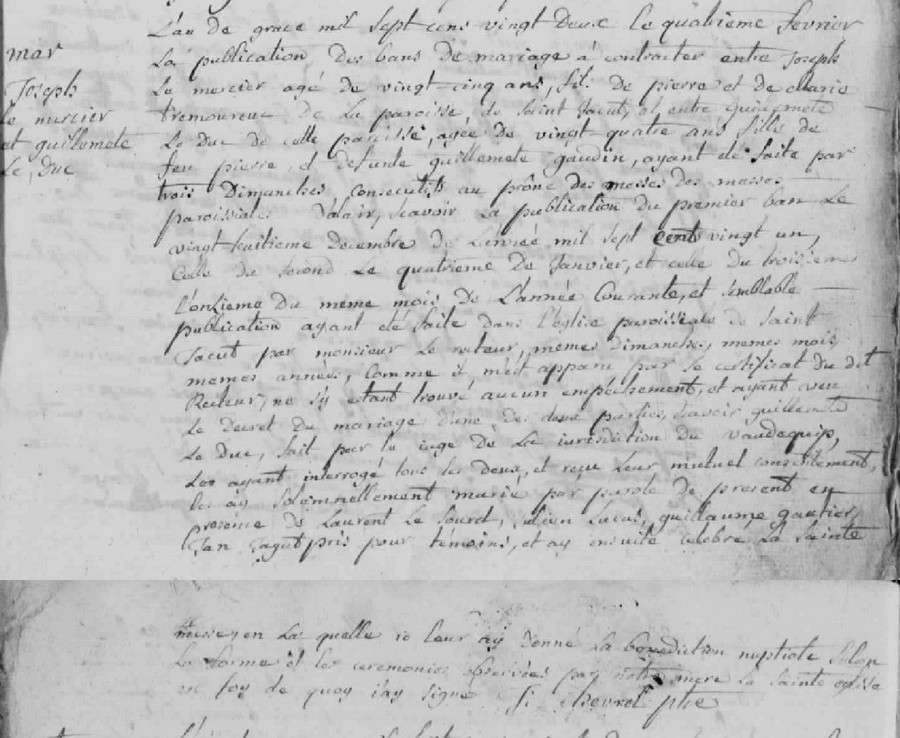 mar
Joseph
le mercier
et guillemete
Le Duc
L'an de grace mil sept cens vingt deux le quatrieme fevrier
La publication des bans de mariage à contracter entre Joseph
Le mercier agé de vingt-cinq ans, fils de pierre et de Marie
tremoureux de La paroisse de Saint Jacut, et entre guillemete
Le Duc de cette paroisse, agée de vingt quatre ans fille de
feu pierre, et defunte guillemete gaudin, ayant été faite par
trois Dimanches consecutifs au prône des messes des messes
paroissiales Dalair, scavoir La publication du premier ban Le
vingt-huitieme decembre de L'année mil sept cent vingt un,
Celle du second Le quatrieme de Janvier, et celle du troisieme
l'onzieme du meme mois de L'année Courante, et semblable
publication ayant été faite dans l'église paroissiale de Saint
Jacut par monsieur Le recteur, memes dimanches, memes mois
memes années, Comme il m'est apparu par Le certificat du dit
Recteur, ne s'y estant trouvé aucun empeschement, et ayant veu
Le decret du mariage d'une des deux parties, scavoir guillemete
Le Duc, fait par le siege de La jurisdiction du vaudequip,
Les ayant interrogé tous les deux, et reçu Leur mutuel consentement,
les ay solemnellement marié par parole de present en
presence de Laurent Le Sourd, Julien Lucas, guillaume gautier,
Jan Jagut pris pour temoins, et ay ensuite celebré La Sainte
messe, en La quelle je leur ay donné La benediction nuptiale selon
La forme et les ceremonies observées par notre mere la sainte eglise
en foy de quoy j'ay signé Chevrel ptre